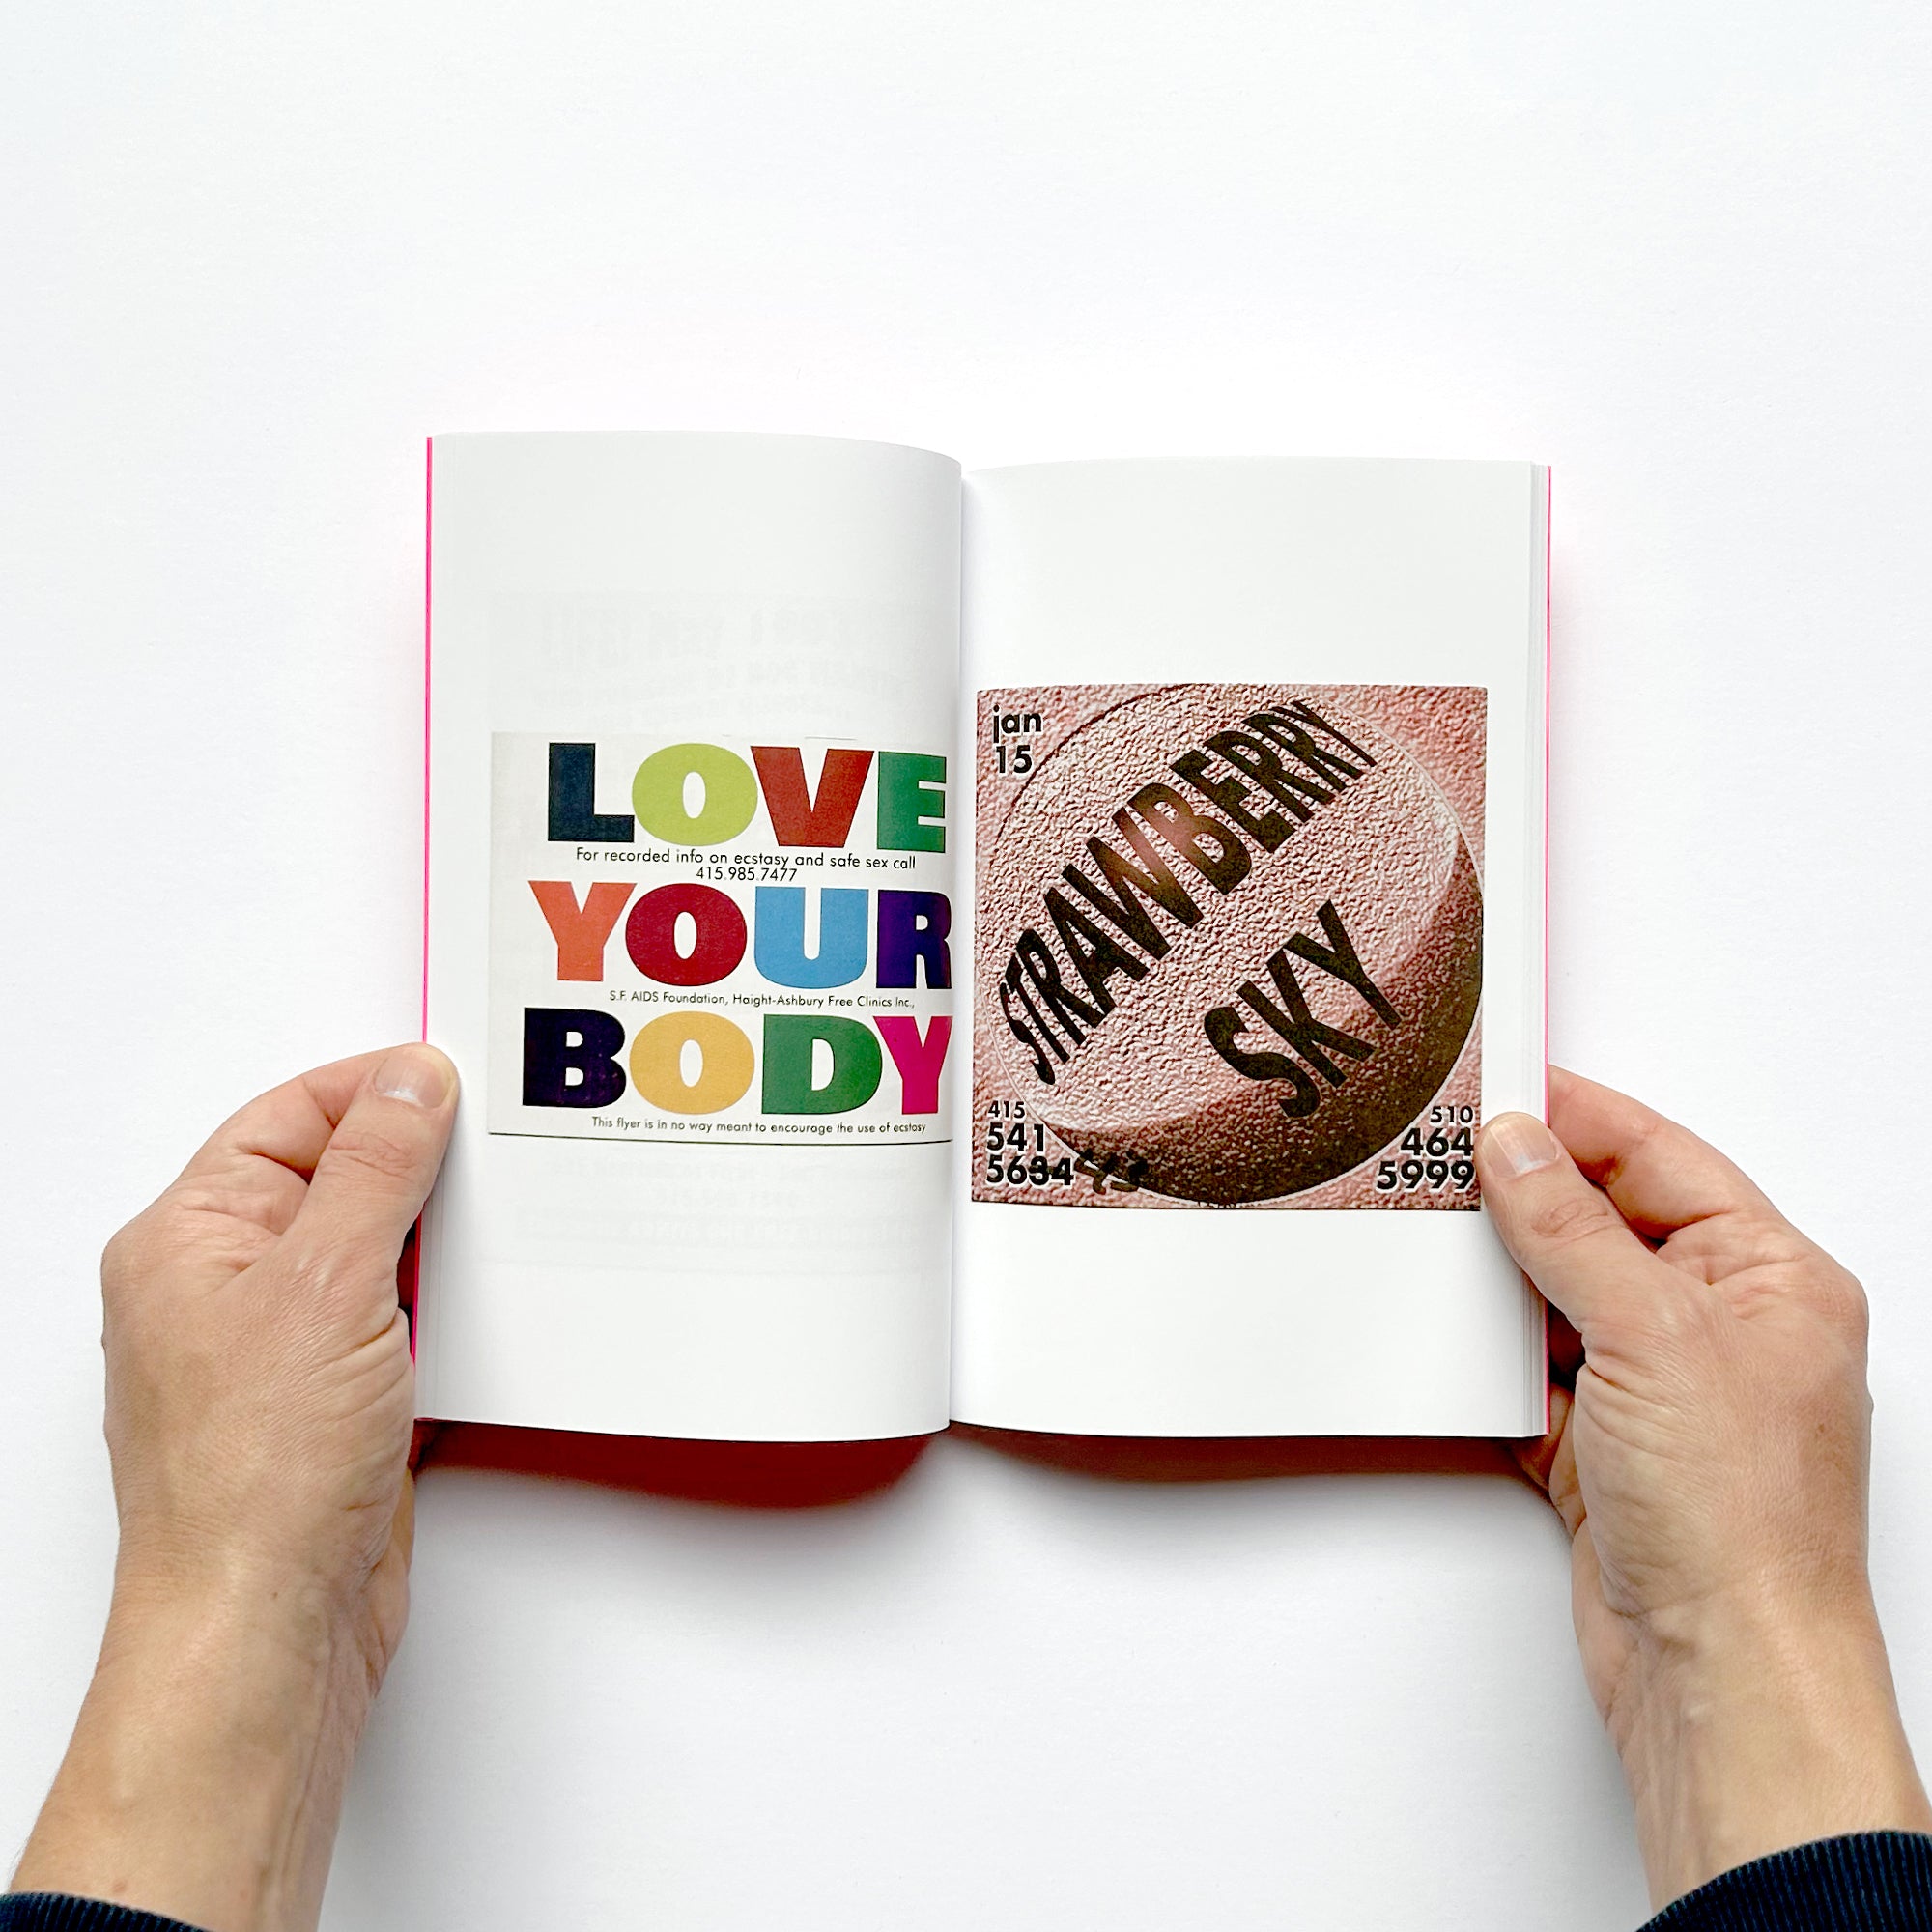 LOVE
For recorded info on ecstasy and safe sex call
415.985.7477
YOUR
S.F. AIDS Foundation, Haight-Ashbury Free Clinics Inc.,
BODY
This flyer is in no way meant to encourage the use of ecstasy
jan
15
STRAWBERRY
SKY
415
541
5634
510
464
5999